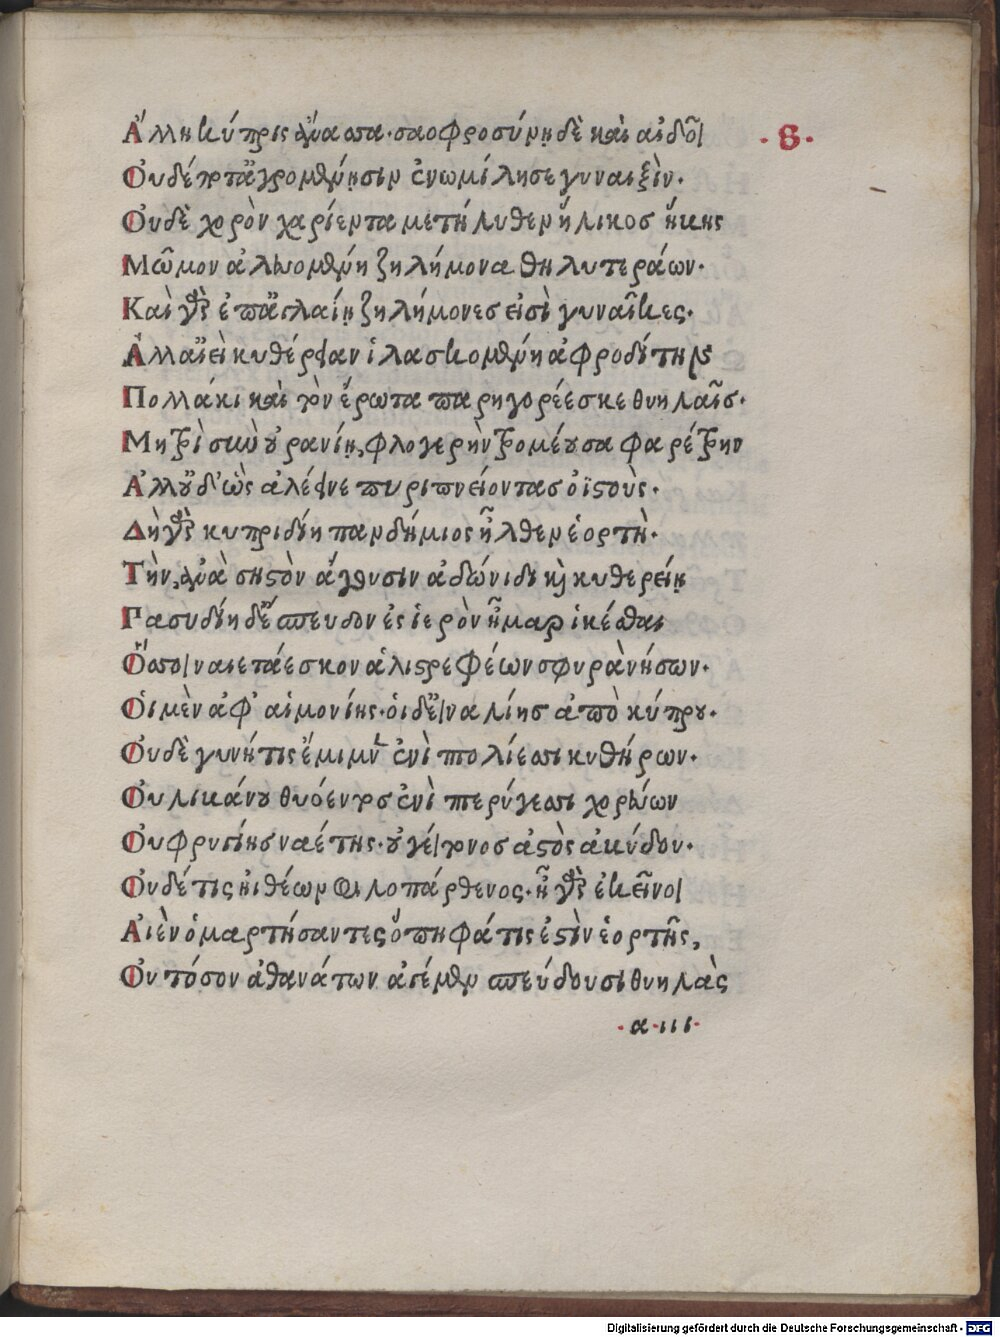 Ἄλλη κύπρις ἄνασσα· σαοφροσύνῃ δὲ καὶ αἰδοῖ
Οὐδέποτ' ἀγρομένῃσιν ἐνωμίλησε γυναιξὶν·
Οὐδὲ χορὸν χαρίεντα μετήλυθεν ἥλικος ἥβης
Μῶμον ἀλευομένη ζηλήμονα θηλυτεράων·
Καὶ γὰρ ἐπ' ἀγλαίῃ ζηλήμονες εἰσὶ γυναῖκες·
Ἀλλ' αἰεὶ κυθέρειαν ἱλασκομένη ἀφροδίτην
Πολλάκι καὶ τὸν ἔρωτα παρηγορέεσκε θυηλαῖς·
Μητρὶ σὺν οὐρανίῃ, φλογερὴν τρομέουσα φαρέτρην
Ἀλλ' οὐδ' ὣς ἀλέεινε πυριπνείοντας ὀϊστούς·
Δὴ γὰρ κυπριδίη πανδήμιος ἦλθεν ἑορτὴ·
Τὴν, ἀνὰ σηστὸν ἄγουσιν ἀδώνιδι καὶ κυθερείῃ
Πασυδίη δ' ἔσπευδον ἐς ἱερὸν ἦμαρ ἱκέσθαι
Ὅσσοι ναιετάεσκον ἁλιστρεφέων σφυρὰ νήσων·
Οἱ μὲν ἀφ' αἱμονίης· οἱ δ' εἰναλίης ἀπὸ κύπρου·
Οὐδὲ γυνή τις ἔμιμνεν ἐνὶ πτολίεσσι κυθήρων·
Οὐ λιβάνου θυόεντος ἐνὶ πτερύγεσσι χορεύων
Οὐ φρυγίης ναέτης· οὐ γείτονος ἀστὸς ἀβύδου·
Οὐδέ τις ἠιθέων φιλοπάρθενος· ἦ γὰρ ἐκεῖνοι
Αἰὲν ὁμαρτήσαντες ὅπη φάτις ἐστὶν ἑορτῆς,
Οὐ τόσον ἀθανάτων ἀγέμεν σπεύδουσι θυηλὰς
·α·ιιι·
Digitalisierung gefördert durch die Deutsche Forschungsgemeinschaft - DFG